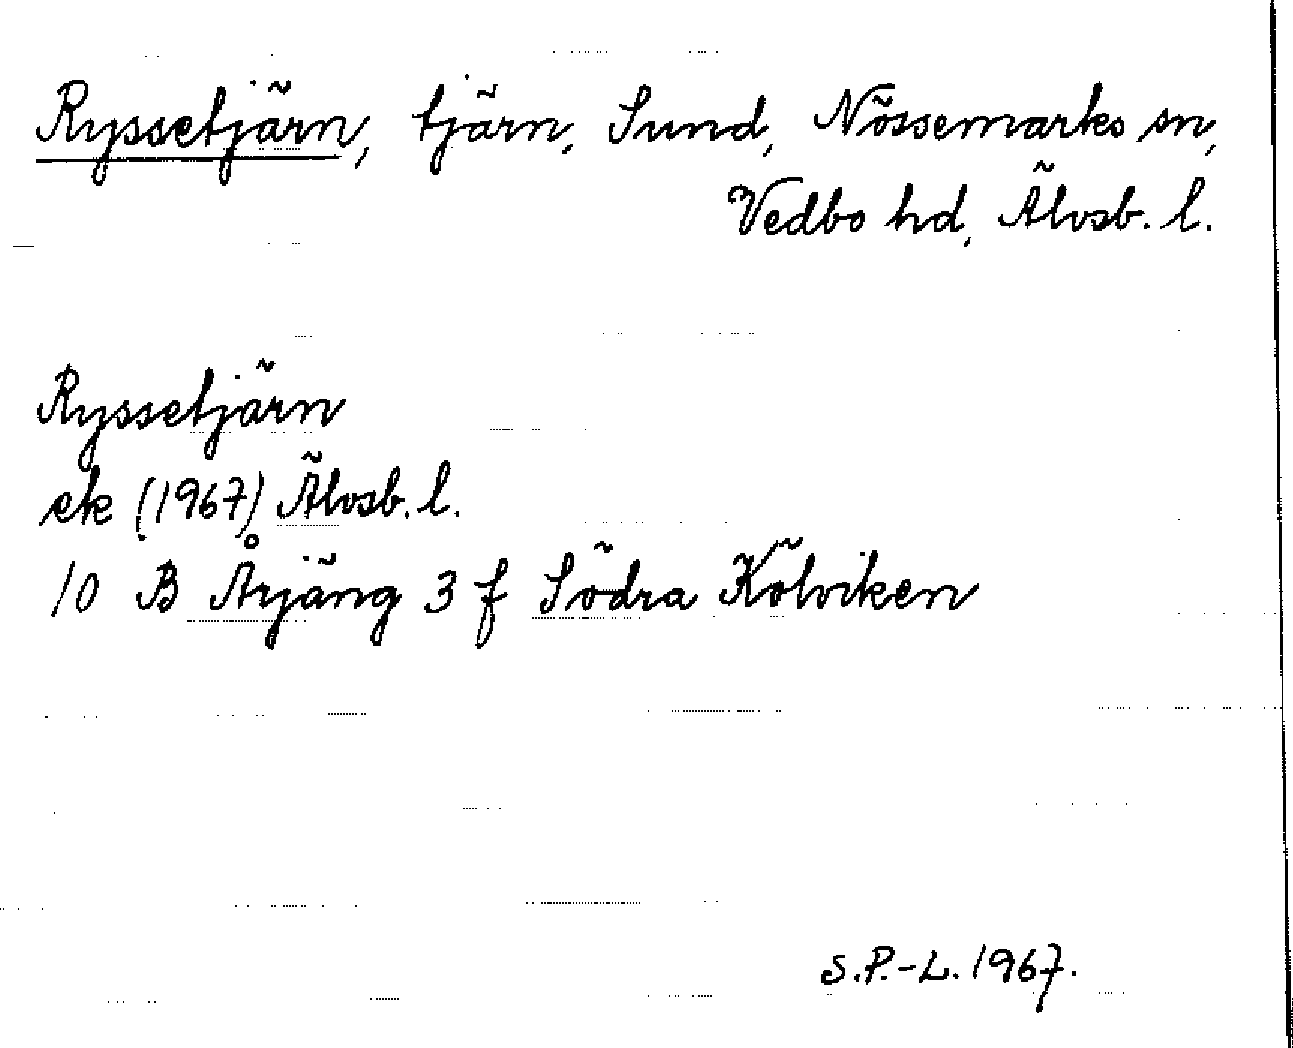 Ryssetjärn, tjärn, Sund, Nössemarks sn,
Vedbo hd, Älvsb. l.
Ryssetjärn
ek (1967) Älvsb. l.
10 B Årjäng 3 f Södra Kölviken
S.P.-L. 1967.